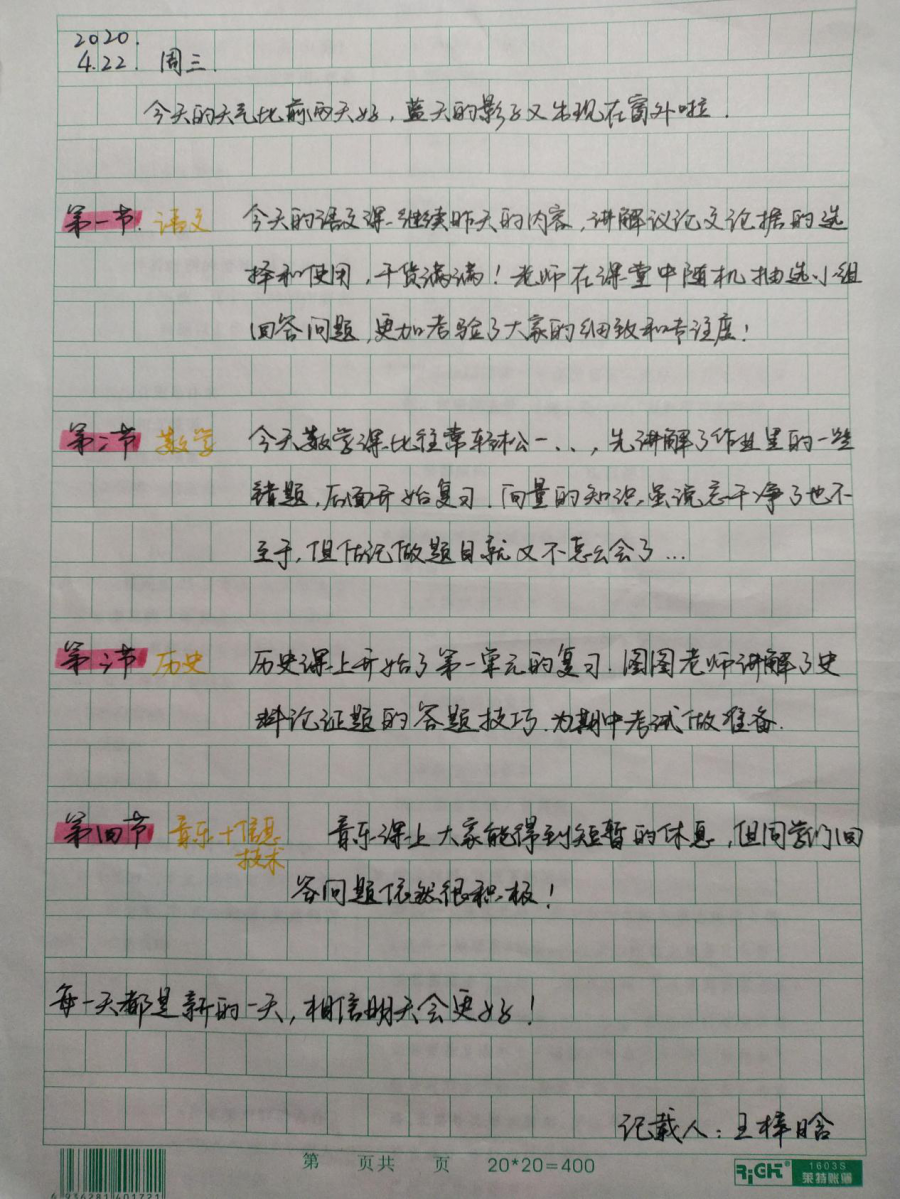 2020.
4.22. 周三.
今天的天气比前两天好，蓝天的影子又出现在窗外啦.
第一节. 语文 今天的语文课继续昨天的内容，讲解议论文论据的选
择和使用，干货满满！老师在课堂中随机抽选小组
回答问题，更加考验了大家的细致和专注度！
第二节 数学 今天数学课比往常轻松一、、，先讲解了作业里的一些
错题，后面开始复习.向量的知识.虽说忘干净了也不
至于，但估记做题目就又不怎么会了...
第三节 历史 历史课上开始了第一单元的复习.图图老师讲解了史
料论证题的答题技巧.为期中考试做准备.
第四节 音乐+信息 音乐课上大家能得到短暂的休息，但同学们回
技术
答问题依然很积极！
每一天都是新的一天，相信明天会更好！
记载人：王梓晗
第 页共 页 20*20=400
RiCH 1603S
莱特账簿
6 936281 601721